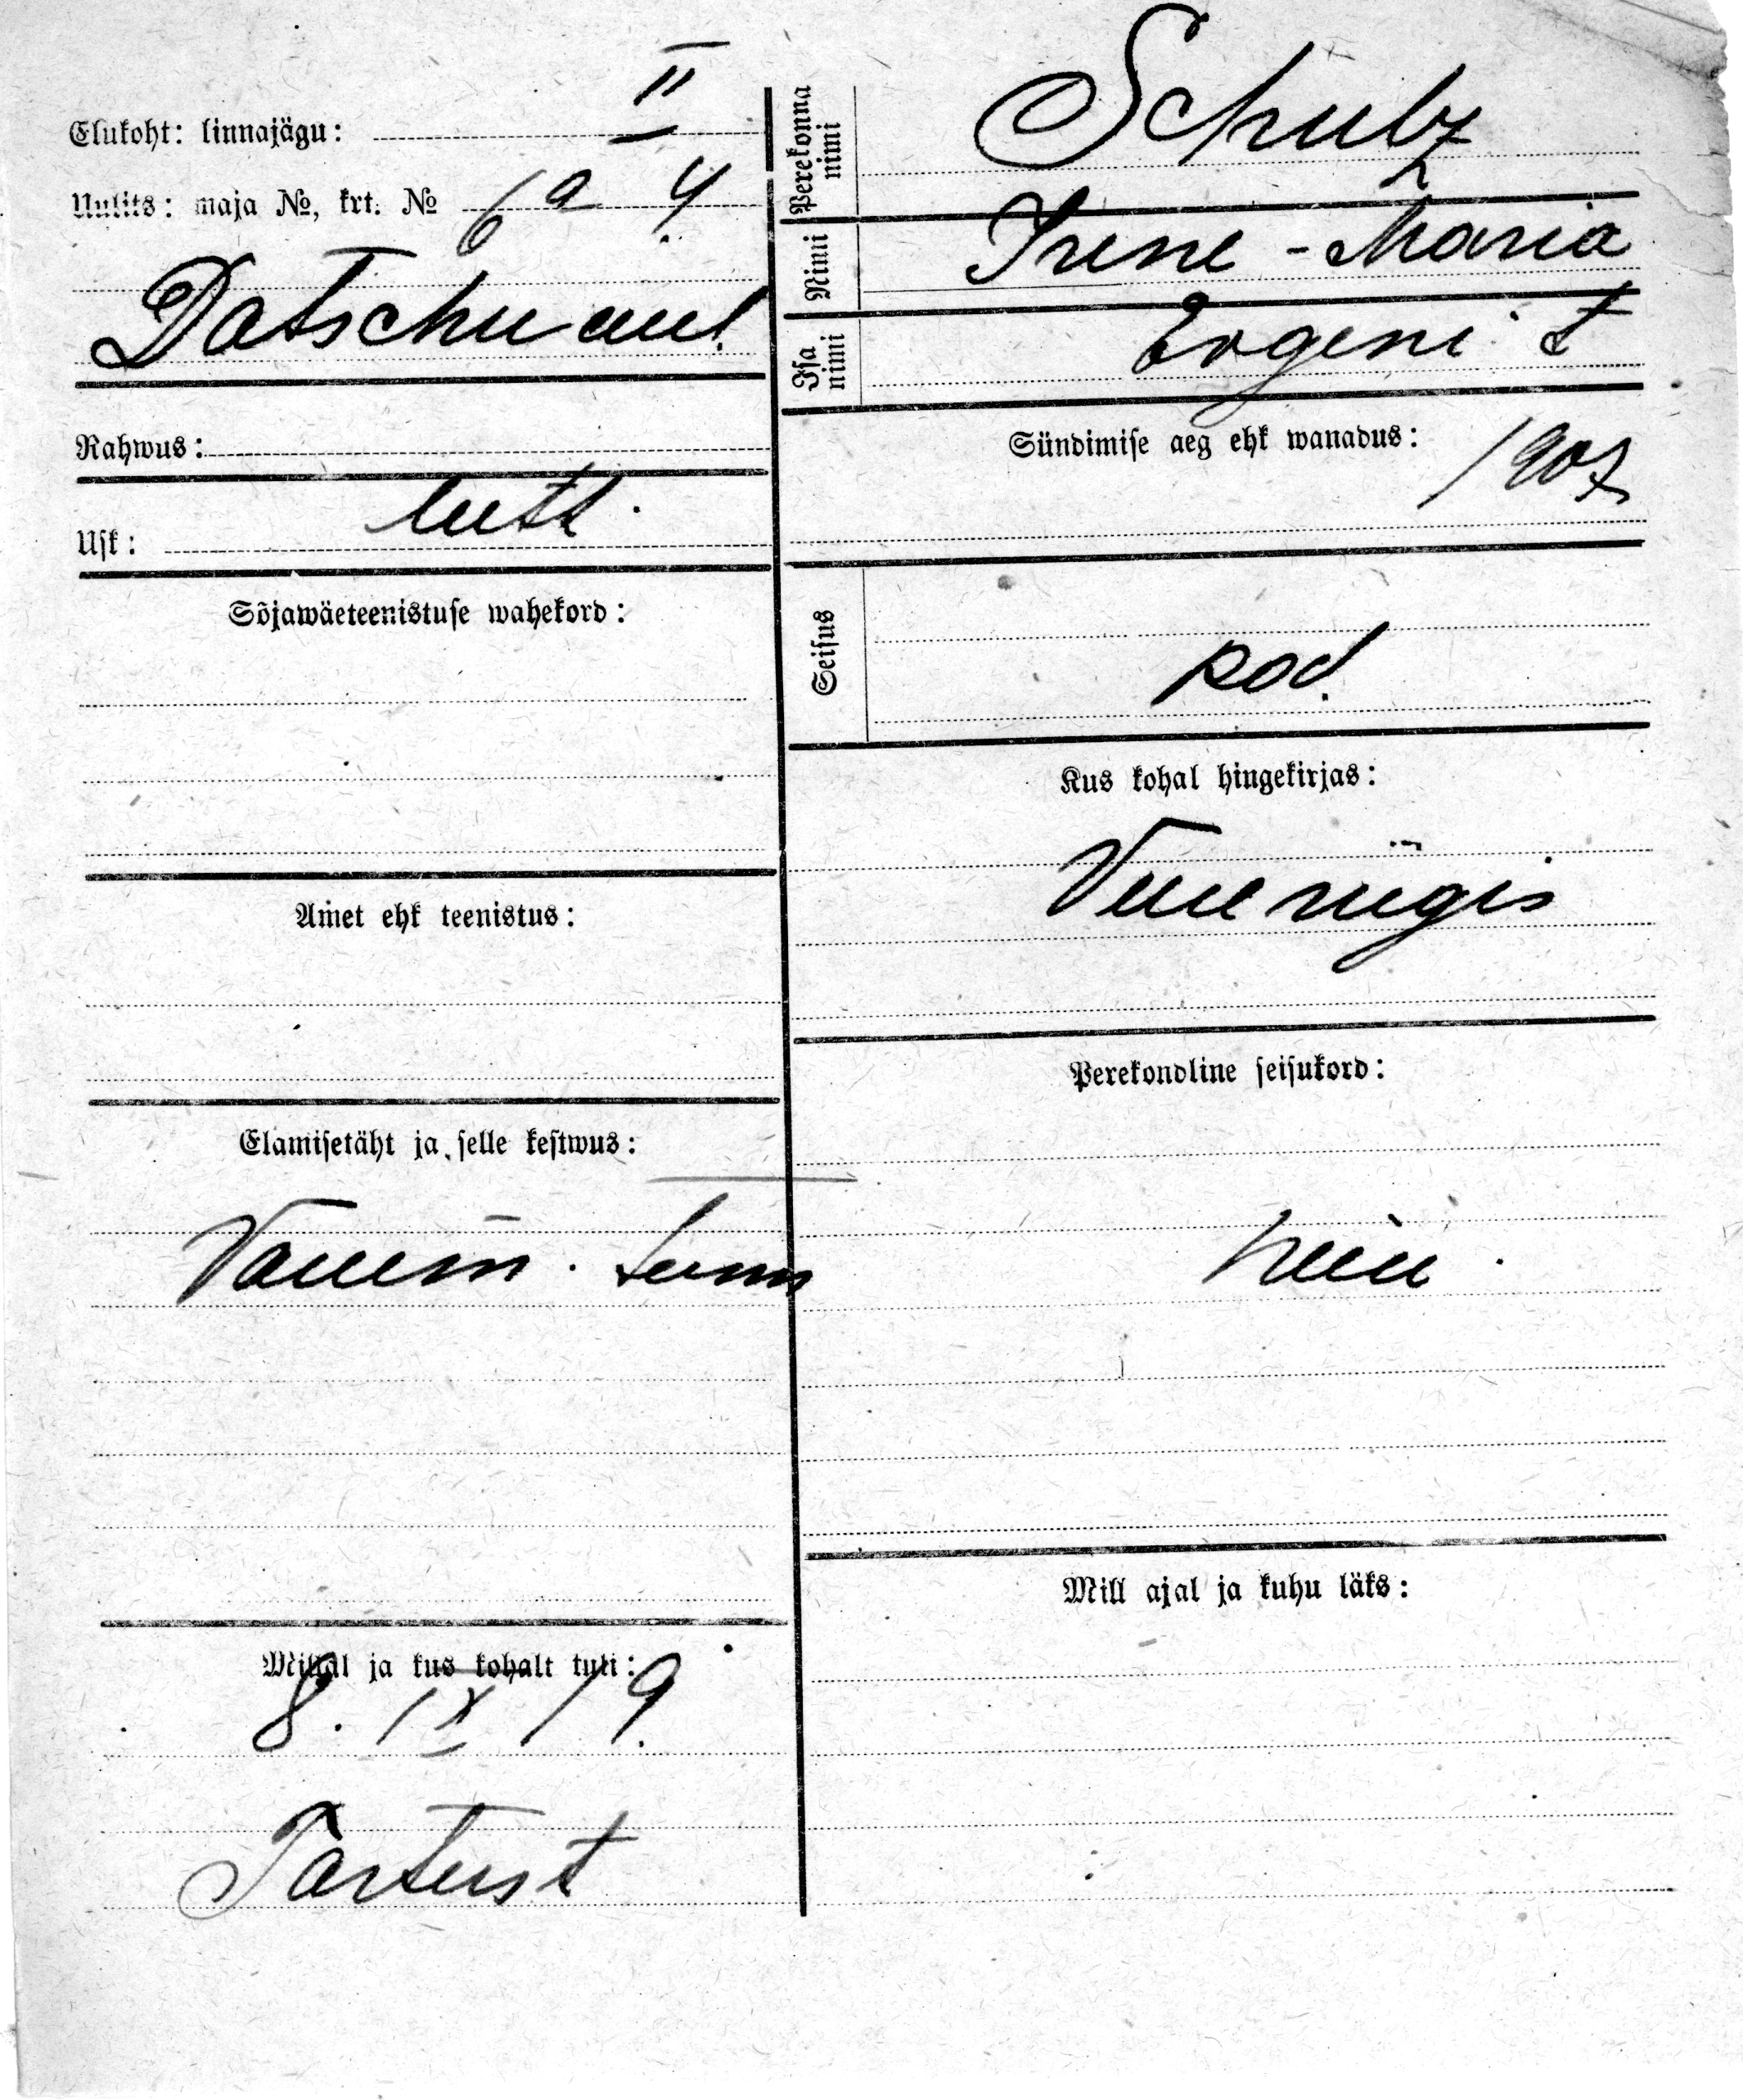 Elukoht: linnajägu: II
Uulits: maja №, krt. № 6a 4
Datschu aul.
Rahwus:
Usk: luth.
Sõjawäeteenistuse wahekord:
Amet ehk teenistus:
Elamisetäht ja selle kestwus:
Millal ja kus kohalt tuli:
8. IX 19.
Tartust
Perekonna nimi Schulz
Nimi Irene - Maria
Isa nimi Evgeni t
Sündimise aeg ehk wanadus: 1907
Seisus kod.
Kus kohal hingekirjas:
Vene riigis
Perekondline seisukord:
Mill ajal ja kuhu läks: